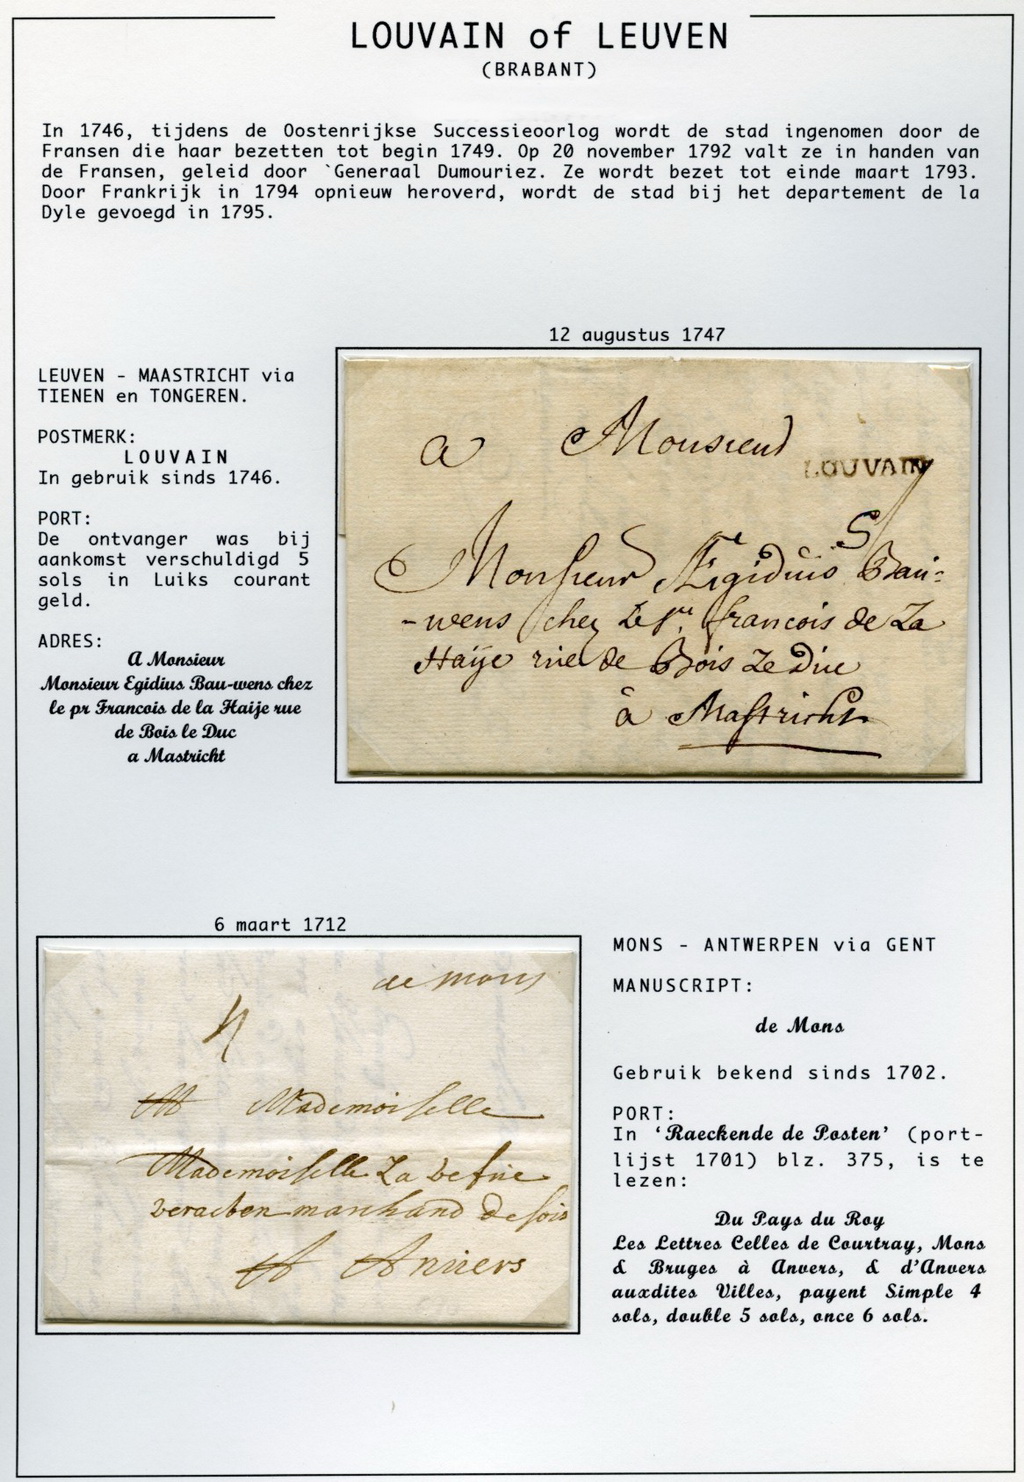 LOUVAIN of LEUVEN
(BRABANT)
In 1746, tijdens de Oostenrijkse Successieoorlog wordt de stad ingenomen door de
Fransen die haar bezetten tot begin 1749. Op 20 november 1792 valt ze in handen van
de Fransen, geleid door `Generaal Dumouriez. Ze wordt bezet tot einde maart 1793.
Door Frankrijk in 1794 opnieuw heroverd, wordt de stad bij het departement de la
Dyle gevoegd in 1795.
12 augustus 1747
LEUVEN - MAASTRICHT via
TIENEN en TONGEREN.
POSTMERK:
LOUVAIN
In gebruik sinds 1746.
PORT:
De ontvanger was bij
aankomst verschuldigd 5
sols in Luiks courant
geld.
ADRES:
A Monsieur
Monsieur Egidius Bau-wens chez
le pr Francois de la Haije rue
de Bois le Duc
a Mastricht
a Monsieur
LOUVAIN
5
Monsieur Egidius Bau-
-wens chez Le pr. francois de La
Haije rue de Bois Le Duc
à Mastricht
6 maart 1712
de mons
4
A Mademoiselle
Mademoiselle La vefue
marchand de soie
A Anvers
MONS - ANTWERPEN via GENT
MANUSCRIPT:
de Mons
Gebruik bekend sinds 1702.
PORT:
In ‘Raeckende de Posten’ (port-
lijst 1701) blz. 375, is te
lezen:
Du Pays du Roy
Les Lettres Celles de Courtray, Mons
& Bruges à Anvers, & d'Anvers
auxdites Villes, payent Simple 4
sols, double 5 sols, once 6 sols.